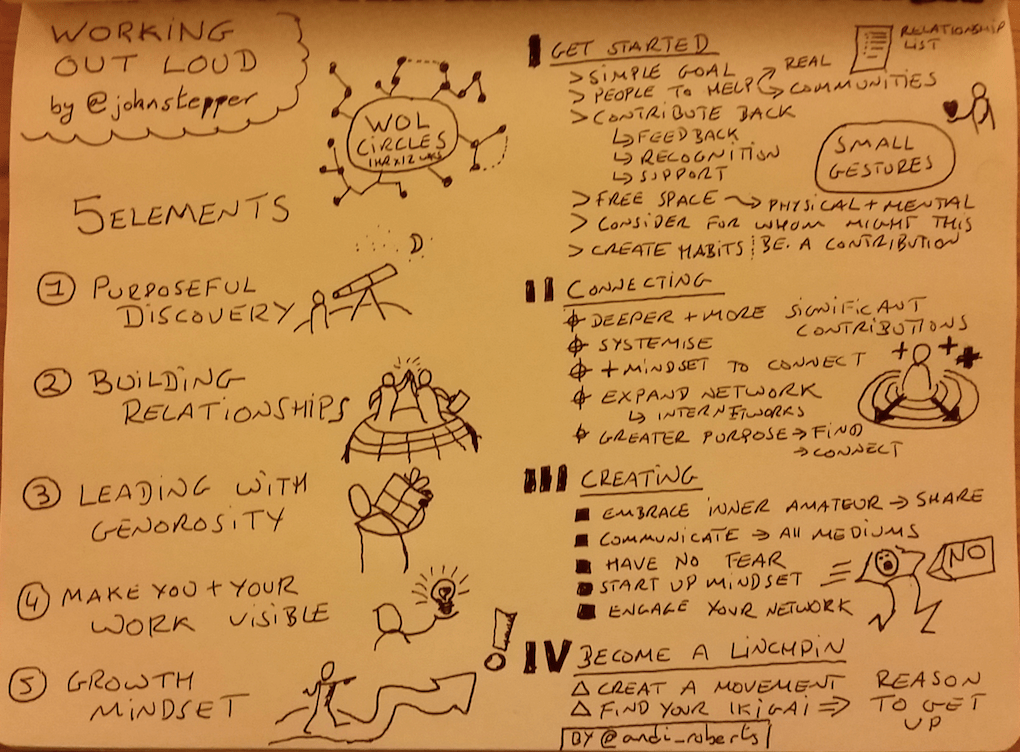 WORKING
OUT LOUD
by @johnstepper
WOL
CIRCLES
1HR X 12 WKS
5 ELEMENTS
1 PURPOSEFUL
DISCOVERY
2 BUILDING
RELATIONSHIPS
3 LEADING WITH
GENOROSITY
4 MAKE YOU + YOUR
WORK VISIBLE
5 GROWTH
MINDSET
I GET STARTED
RELATIONSHIP
LIST
> SIMPLE GOAL
> PEOPLE TO HELP
REAL
COMMUNITIES
> CONTRIBUTE BACK
↳ FEEDBACK
↳ RECOGNITION
↳ SUPPORT
SMALL
GESTURES
> FREE SPACE → PHYSICAL + MENTAL
> CONSIDER FOR WHOM MIGHT THIS
> CREATE HABITS BE A CONTRIBUTION
II CONNECTING
DEEPER + MORE SIGNIFICANT
CONTRIBUTIONS
SYSTEMISE
+ MINDSET TO CONNECT
EXPAND NETWORK
↳ INTERNETWORKS
GREATER PURPOSE → FIND
→ CONNECT
III CREATING
EMBRACE INNER AMATEUR → SHARE
COMMUNICATE → All MEDIUMS
HAVE NO FEAR
START UP MINDSET
ENGAGE YOUR NETWORK
NO
!
IV BECOME A LINCHPIN
CREAT A MOVEMENT
FIND YOUR IKIGAI ⇒ REASON
TO GET
UP
BY @andi_roberts